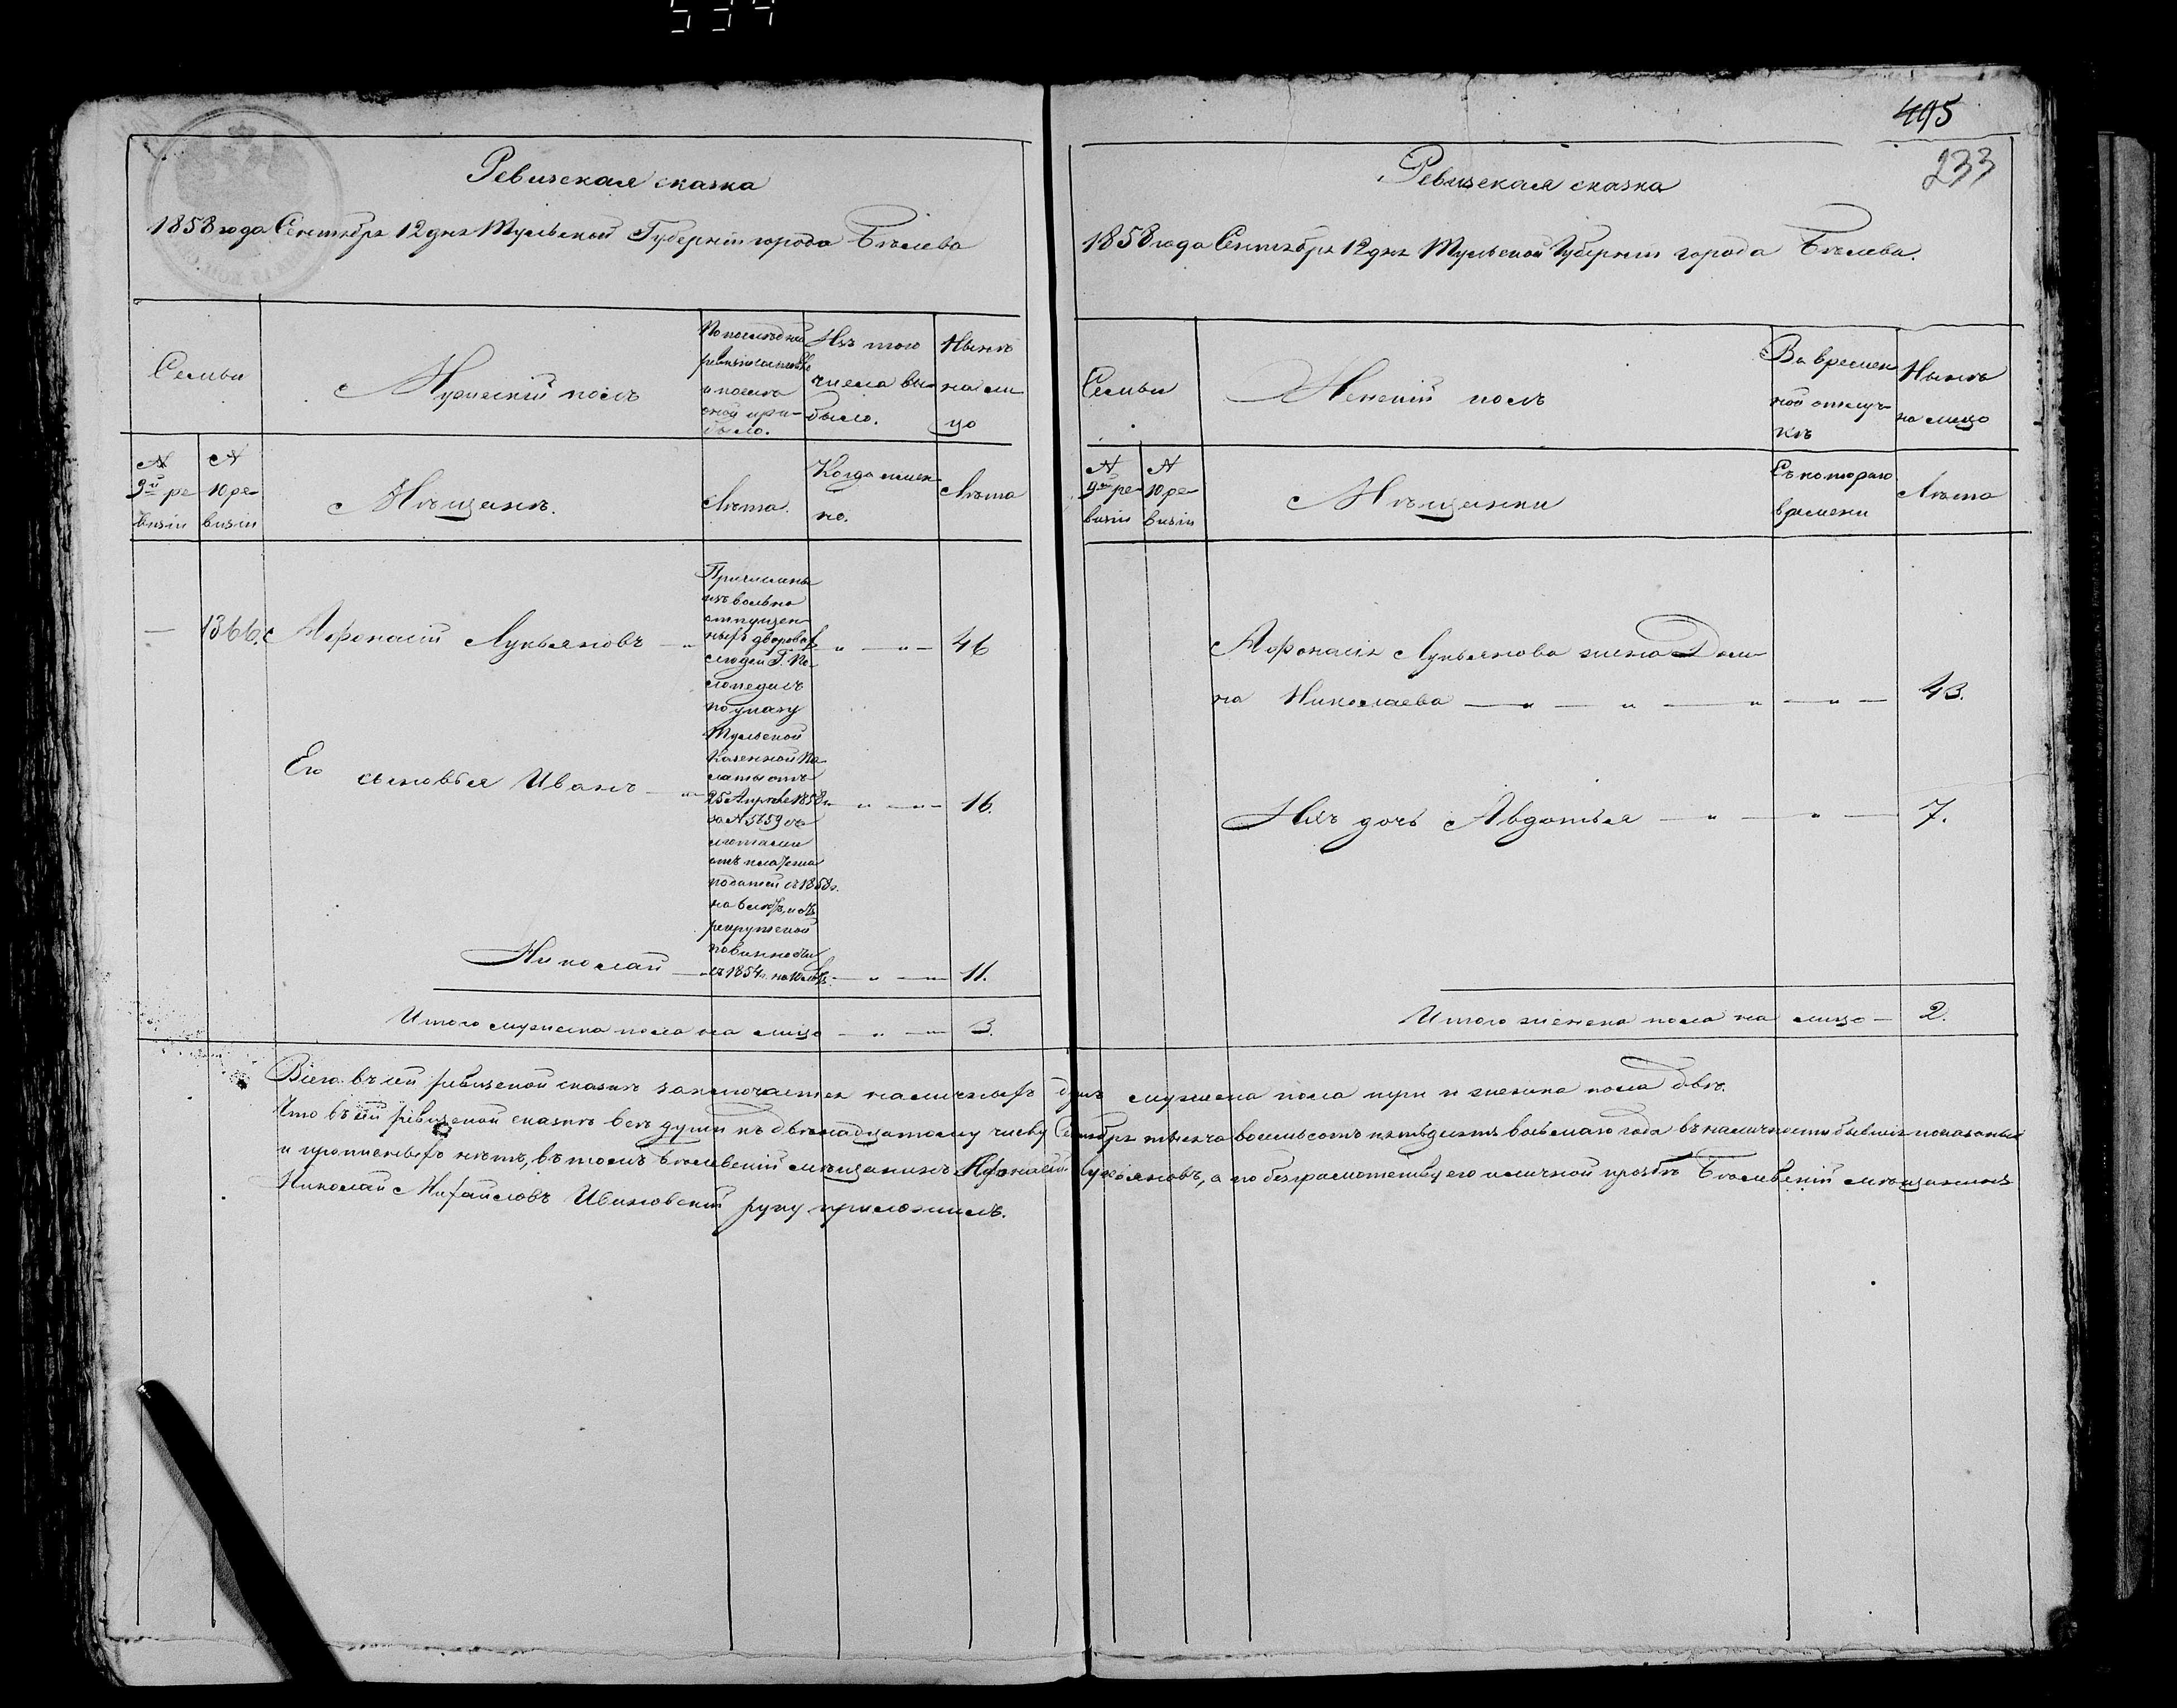 534
Ревизская сказка
1858 года Сентября 12 дня Тульской Губерніи города Бѣлева
Семьи
Мужескій полъ
По последней
ревизіи состояло
и после
оной при-
было.
Изъ того
числа вы-
было.
Нынѣ
на ли
цо
№
9й ре
визіи
№
10 ре-
визіи
Мѣщанъ.
Лѣта.
Когда имен
но.
Лѣта
— 1366. Афонасій Лукьяновъ — „ — „ — 46
Причислены
изъ вольно
отпущен-
ныхъ дворовыхъ
людей Г.
по указу
Тульской
Казенной Па
латы отъ
25 Апреля 1858 г.
за № 5159 съ
льготами
отъ платежа
податей съ 1858 г.
на 6 лѣтъ, и отъ
рекрутской
повинности
съ 1854 г. на 10 лѣтъ
Его сыновья Иванъ — „ — „ — 16.
Николай — „ — „ — 11.
Итого мужеска пола на лицо — „ — 3.
495
233
Ревизская сказка
1858 года Сентября 12 дня Тульской Губерніи города Бѣлева.
Семьи
Женскій полъ
Во времен
ной отлуч-
кѣ
Нынѣ
на лицо
№
9й ре-
визіи
№
10 ре-
визіи
Мѣщанки
Съ котораго
времени
Лѣта
Афонасія Лукьянова жена Дом-
на Николаева — „ — „ — „ — „ — 43.
Ихъ дочь Авдотья — „ — „ — 7.
Итого женска пола на лицо — 2.
Всего въ сей ревизской сказкѣ заключается наличныхъ душъ мужеска пола три и женска пола двѣ.
Что въ сей ревизской сказкѣ всѣ души къ двѣнадцатому числу Сентября тысяча восемьсотъ пятьдесятъ восьмаго года въ наличности бывшія показаны
и прописныхъ нѣтъ, въ томъ Бѣлевскій мѣщанинъ Афонасій Лукьяновъ, а по безграмотству его и личной прозбѣ Бѣлевскій мѣщанинъ
Николай Михайловъ Ивановскій руку приложилъ.